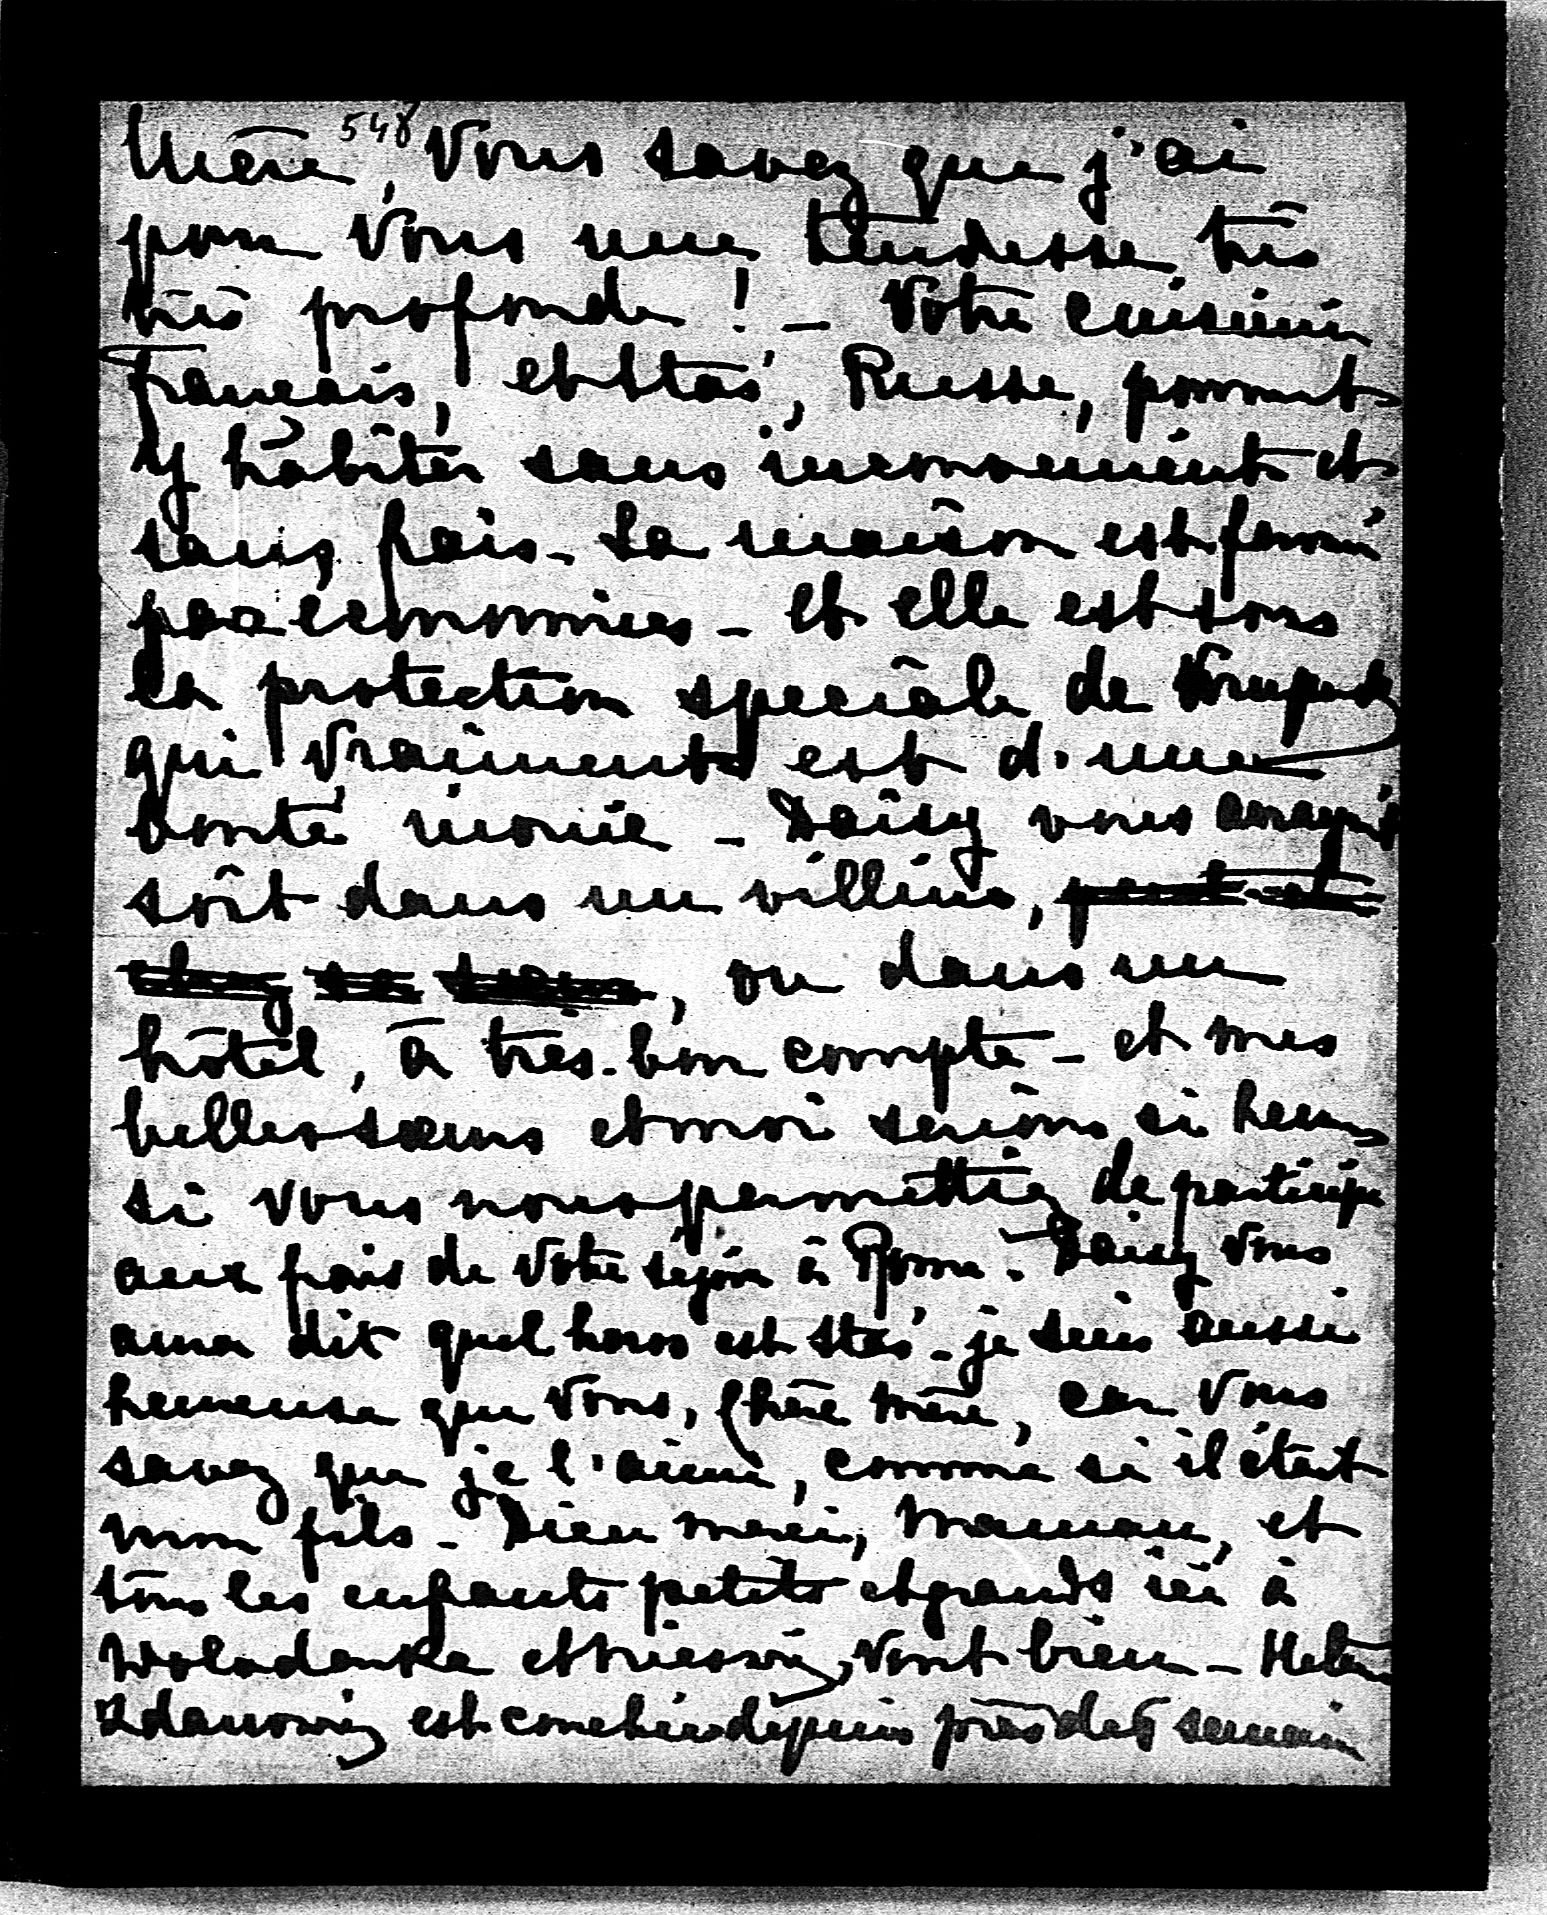 548
Mère, Vous savez que j'ai
pour Vous une tendresse très
très profonde ! – Votre cuisinier
français, et Staś, Russe, pourront
y habiter sans inconvenient et
sans frais – La maison est fermée
par economies – et elle est sous
la protection speciale de
qui vraiment est d'une
bonté inouïe – Daisy vous
soit dans un villino, peut-etre
chez sa, ou dans un
hôtel, à très bon compte – et mes
belles sœurs et moi serions si heureuses
si vous nous permettiez de participer
aux frais de Votre séjour à Rome. Daisy Vous
aura dit quel heros est Staś – je suis aussi
heureuse que Vous, Chère Mère, car Vous
savez que je l'aime, comme si il était
mon fils – Dieu merci, Maman, et
tous les enfants petits et grands ici à
Wolodarka et, vont bien –
est depuis près de 6 semaines